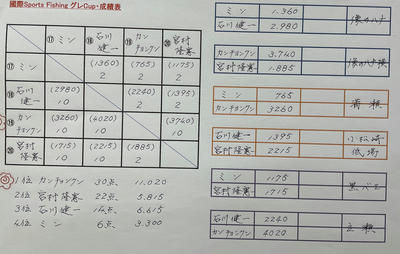 國際Sports Fishing グレCup・成績表
⑰ ミン ⑱ 石川健一 ⑲ カンチョンクン ⑳ 宮村隆寛
⑰ ミン (1360) 2 (765) 2 (1175) 2
⑱ 石川健一 (2980) 10 (2240) 2 (1395) 2
⑲ カンチョンクン (3260) 10 (4020) 10 (3740) 10
⑳ 宮村隆寛 (1715) 10 (2215) 10 (1885) 2
1位 カンチョンクン 30点、 11.020
2位 宮村隆寛 22点、 5.815
3位 石川健一 14点、 6.615
4位 ミン 6点、 3.300
ミン 1.360
石川健一 2.980
カンチョンクン 3.740
宮村隆寛 1.885
ミン 765
カンチョンクン 3260
石川健一 1395 小松崎
宮村隆寛 2215 低場
ミン 1175
宮村隆寛 1715
石川健一 2240 立瀬
カンチョンクン 4020